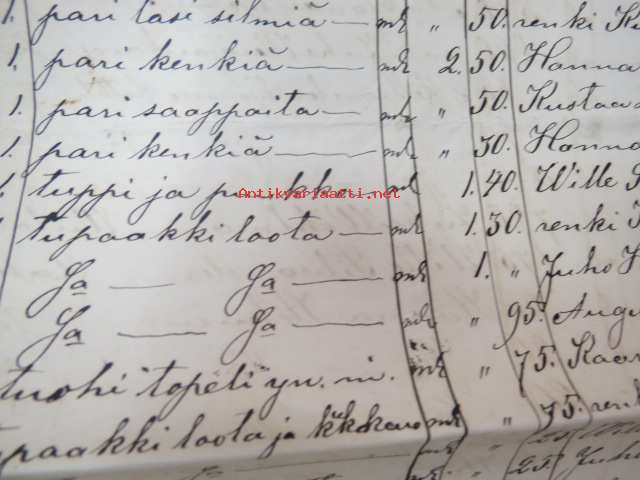 1. pari lasi silmiä — mk " 50. renki
1. pari kenkiä — mk 2. 50. Hanna
1. pari saappaita — mk " 50. Kustaa
1. pari kenkiä — mk " 30. Hanna
1 tuppi ja puukko — mk 1. 40. Wille
1 tupaakki loota — mk 1. 30. renki
Ja — Ja — mk 1. " Juho
Ja — Ja — mk " 95. Augu
tuohi topeli yn. m. mk " 75. Kaar
tupaakki loota ja mk " 75. renk
mk " 25. Juho
Antikvariaatti.net